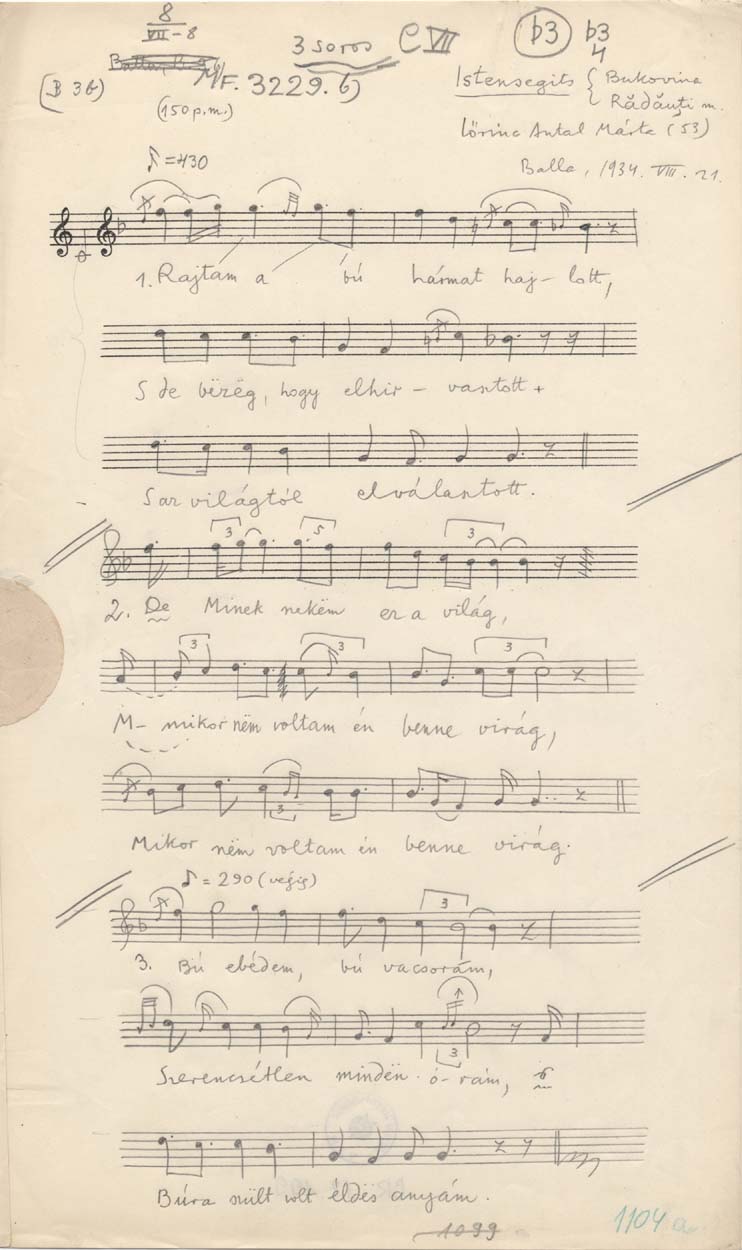 8
VII-8
3 soros C VII b3 b3
4
(B 3b) M.F. 3229. b)
Istensegits { Bukovina
Rădăuți m.
(150 p.m.)
Lőrinc Antal Márta (53)
♪=430
Balla, 1934. VIII. 21.
1. Rajtam a bú hármat haj- lott,
S de bëzëg, hogy elhir- vantott +
Sar világtól elválantott.
3 5 3
2. De Minek nekëm ez a világ,
3 3 3
M- mikor nëm voltam én benne virág,
3
Mikor nëm voltam én benne virág.
♪= 290 (végig)
3
3. Bú ebédem, bú vacsorám,
3
Szerencsétlen mindën ó- rám,
Búra szült volt éldës anyám.
1099
1104 a